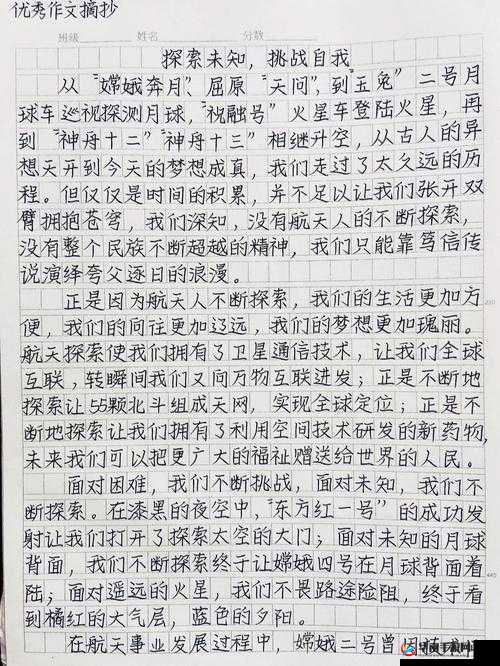 优秀作文摘抄
班级 姓名 分数
探索未知，挑战自我
从“嫦娥奔月”、屈原“天问”，到“玉兔”二号月
球车巡视探测月球，“祝融号”火星车登陆火星，再
到“神舟十二”“神舟十三”相继升空，从古人的异
想天开到今天的梦想成真，我们走过了太久远的历
程。但仅仅是时间的积累，并不足以让我们张开双
臂拥抱苍穹，我们深知，没有航天人的不断探索，
没有整个民族不断超越的精神，我们只能靠笃信传
说演绎夸父逐日的浪漫。
正是因为航天人不断探索，我们的生活更加方
便，我们的向往更加辽远，我们的梦想更加瑰丽。
航天探索使我们拥有了卫星通信技术，让我们全球
互联，转瞬间我们又向万物互联进发；正是不断地
探索让55颗北斗组成天网，实现全球定位；正是不
断地探索让我们拥有了利用空间技术研发的新药物，
未来我们可以把更广大的福祉赠送给世界的人民。
面对困难，我们不断挑战，面对未知，我们不
断探索。在漆黑的夜空中，“东方红一号”的成功发
射让我们打开了探索太空的大门；面对未知的月球
背面，我们不断探索终于让嫦娥四号在月球背面着
陆；面对遥远的火星，我们不畏路途险阻，终于看
到橘红的大气层，蓝色的夕阳。
在航天事业发展过程中，嫦娥二号曾因